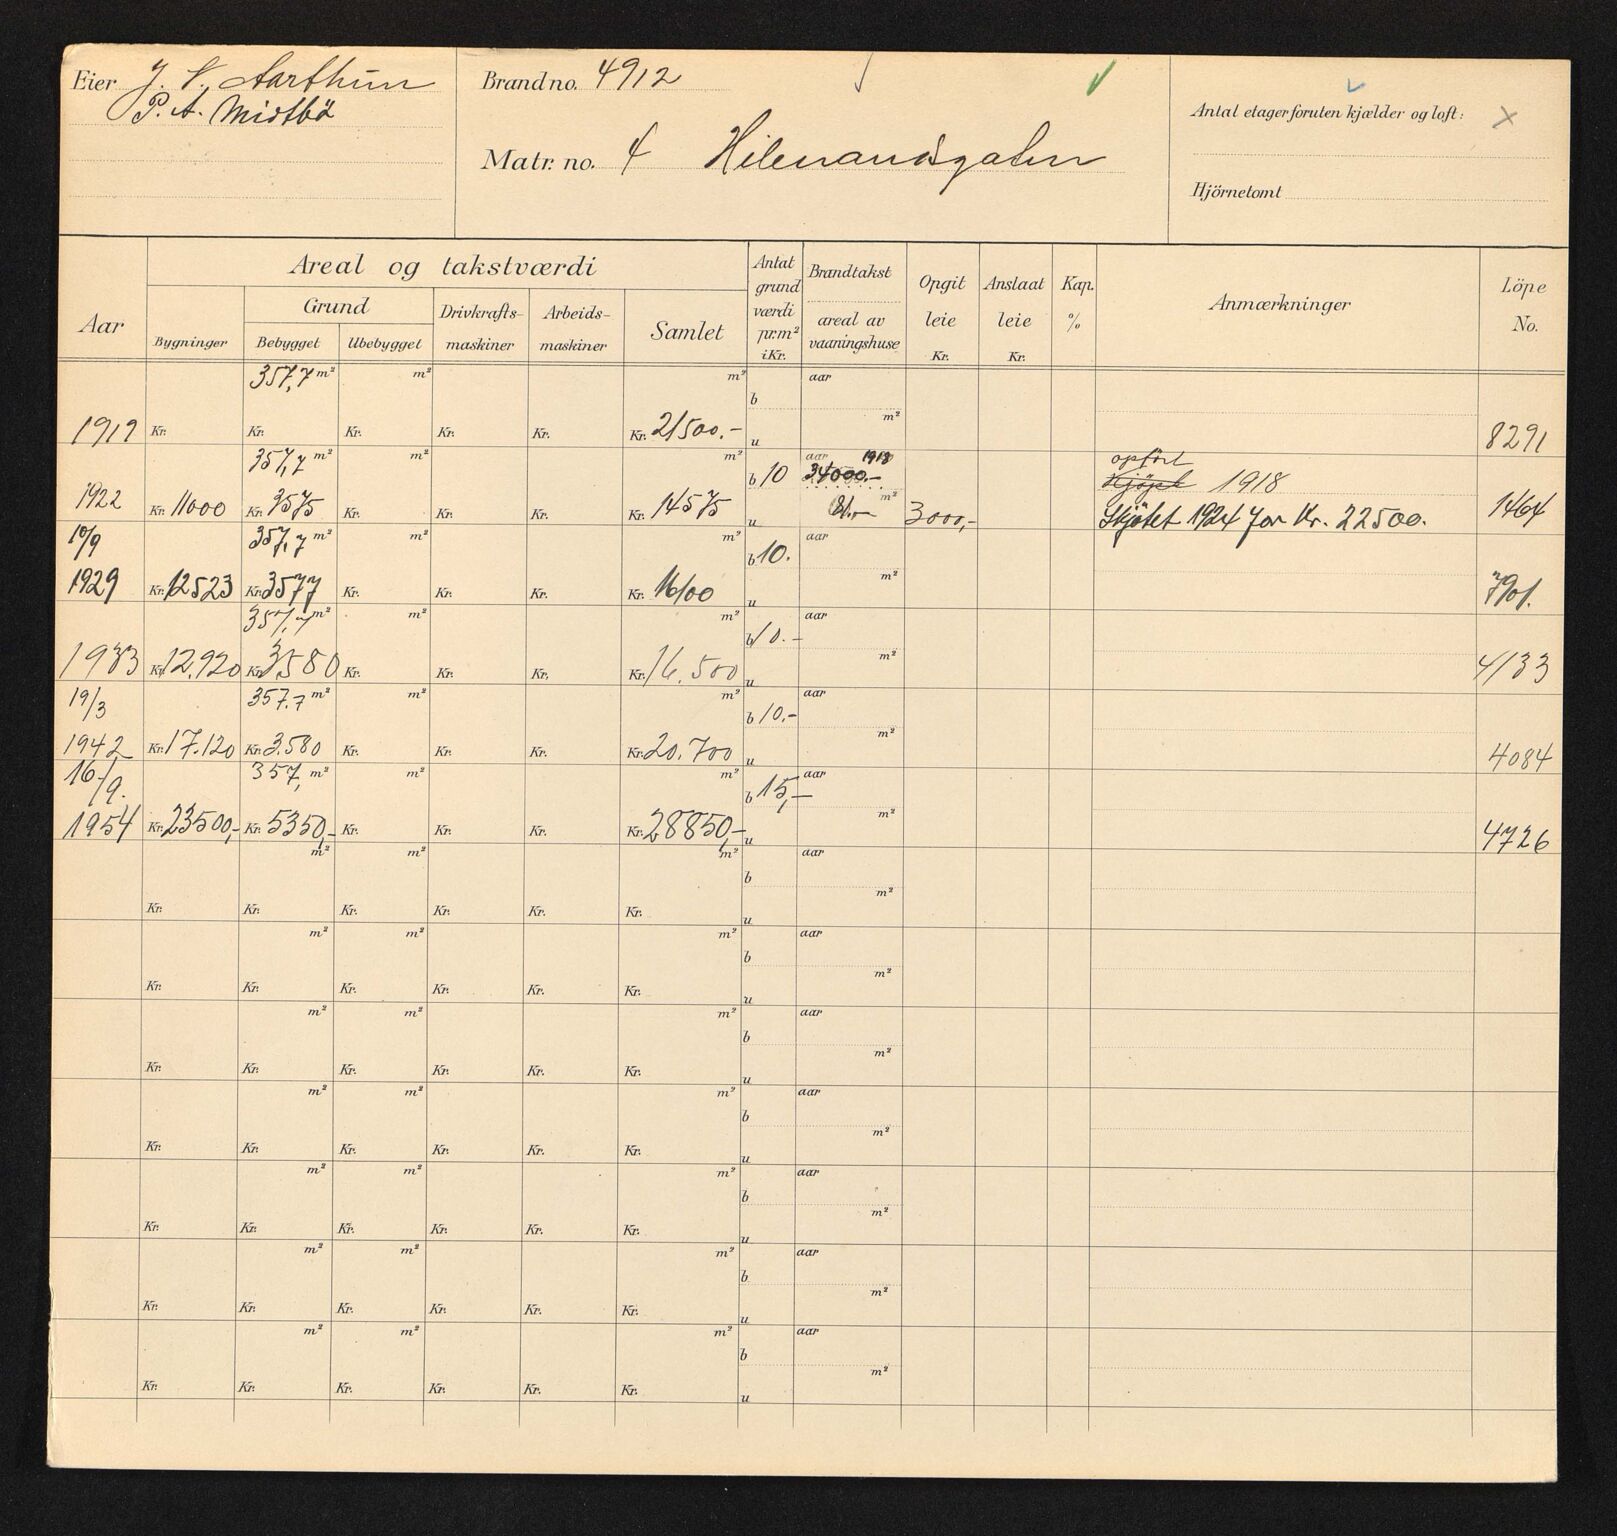 Eier J. N. Aarthun
P. A. Midtbö
Brandno. 4912
Matr. no. 4 Hilevandsgaten
Antal etager foruten kjælder og loft: x
Hjörnetomt
Aar
Areal og takstværdi
Grund
Bygninger Bebygget Ubebygget
Drivkrafts-maskiner
Arbeids-maskiner
Samlet
Antat grund værdi pr. m² i Kr.
Brandtakst
areal av vaaningshuse
Opgit leie Kr.
Anslaat leie Kr.
Kap. %
Anmærkninger
Löpe No.
357,7 m² m² m² aar
b
m²
1919 Kr. Kr. Kr. Kr. Kr. Kr. 21500.- u 8291
357,7 m² m² m² b 10 aar 1918 34000.- opfört
Kjöpt 1918
1922 Kr. 11000 Kr. 3575 Kr. Kr. Kr. Kr. 14575 u m² 3000,- Skjötet 1924 for Kr. 22500. 1464
10/9 357,7 m² m² m² b 10. aar
m²
1929 Kr. 12523 Kr. 3577 Kr. Kr. Kr. Kr. 16100 u 7901.
357,7 m² m² m² b 10.- aar
m²
1933 Kr. 12.920 Kr. 3580 Kr. Kr. Kr. Kr. 16.500 u 4133
19/3 357.7 m² m² m² b 10.- aar
m²
1942 Kr. 17.120 Kr. 3.580 Kr. Kr. Kr. Kr. 20.700 u 4084
16/9. 357, m² m² m² b 15,- aar
m²
1954 Kr. 23500,- Kr. 5350,- Kr. Kr. Kr. Kr. 28850,- u 4726
m² m² m² aar
b
m²
Kr. Kr. Kr. Kr. Kr. Kr. u
m² m² m² aar
b
m²
Kr. Kr. Kr. Kr. Kr. Kr. u
m² m² m² aar
b
m²
Kr. Kr. Kr. Kr. Kr. Kr. u
m² m² m² aar
b
m²
Kr. Kr. Kr. Kr. Kr. Kr. u
m² m² m² aar
b
m²
Kr. Kr. Kr. Kr. Kr. Kr. u
m² m² m² aar
b
m²
Kr. Kr. Kr. Kr. Kr. Kr. u
m² m² m² aar
b
m²
Kr. Kr. Kr. Kr. Kr. Kr. u